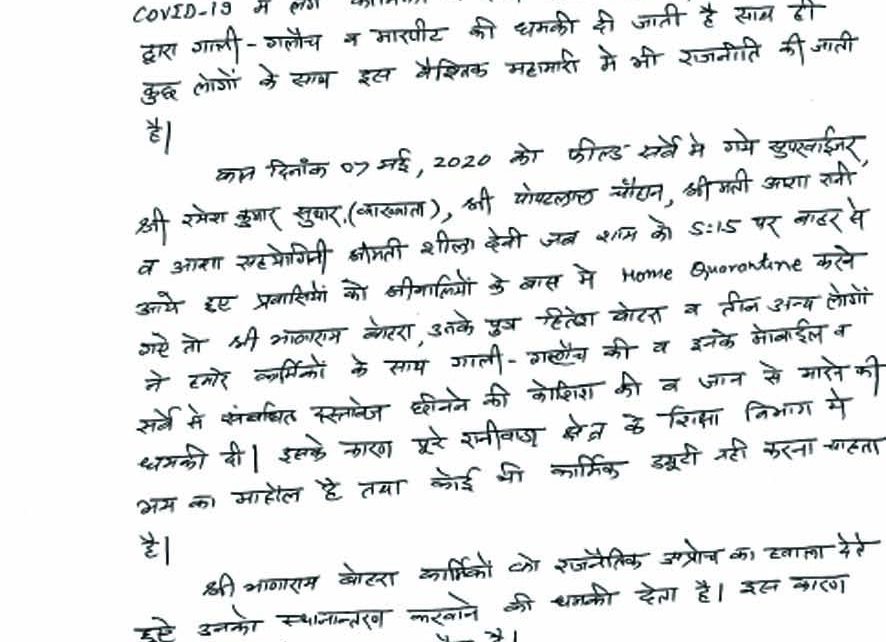 COVID-19 में लगे
द्वारा गाली-गलौच व मारपीट की धमकी दी जाती है साथ ही
कुछ लोगों के साथ इस वैश्विक महामारी मे भी राजनीति की जाती
है।
कल दिनाँक 07 मई, 2020 को फील्ड सर्वे मे गये सुपरवाईजर,
श्री रमेश कुमार सुथार, श्री पोपटलाल चौहान, श्री मती आशा रानी,
व आशा सहयोगिनी श्रीमती शीला देवी जब शाम को 5:15 पर बाहर से
आये हुए प्रवासियों को श्रीमालियों के वास मे Home Quarantine करने
गऐ तो श्री भागाराम बोहरा, उनके पुत्र हितेश बोहरा व तीन अन्य लोगों
ने हमारे कार्मिकों के साथ गाली-गलौच की व इनके मोबाईल व
सर्वे से संबंधित दस्तावेज छीनने की कोशिश की व जान से मारने की
धमकी दी। इसके कारण पूरे रानीवाडा क्षेत्र के शिक्षा विभाग मे
भय का माहौल है तथा कोई भी कार्मिक ड्यूटी नही करना चाहता
है।
श्री भागाराम बोहरा कार्मिकों को राजनैतिक अप्रोच का हवाला देते
हुऐ उनको स्थानान्तरण करवाने की धमकी देता है। इस कारण
है।